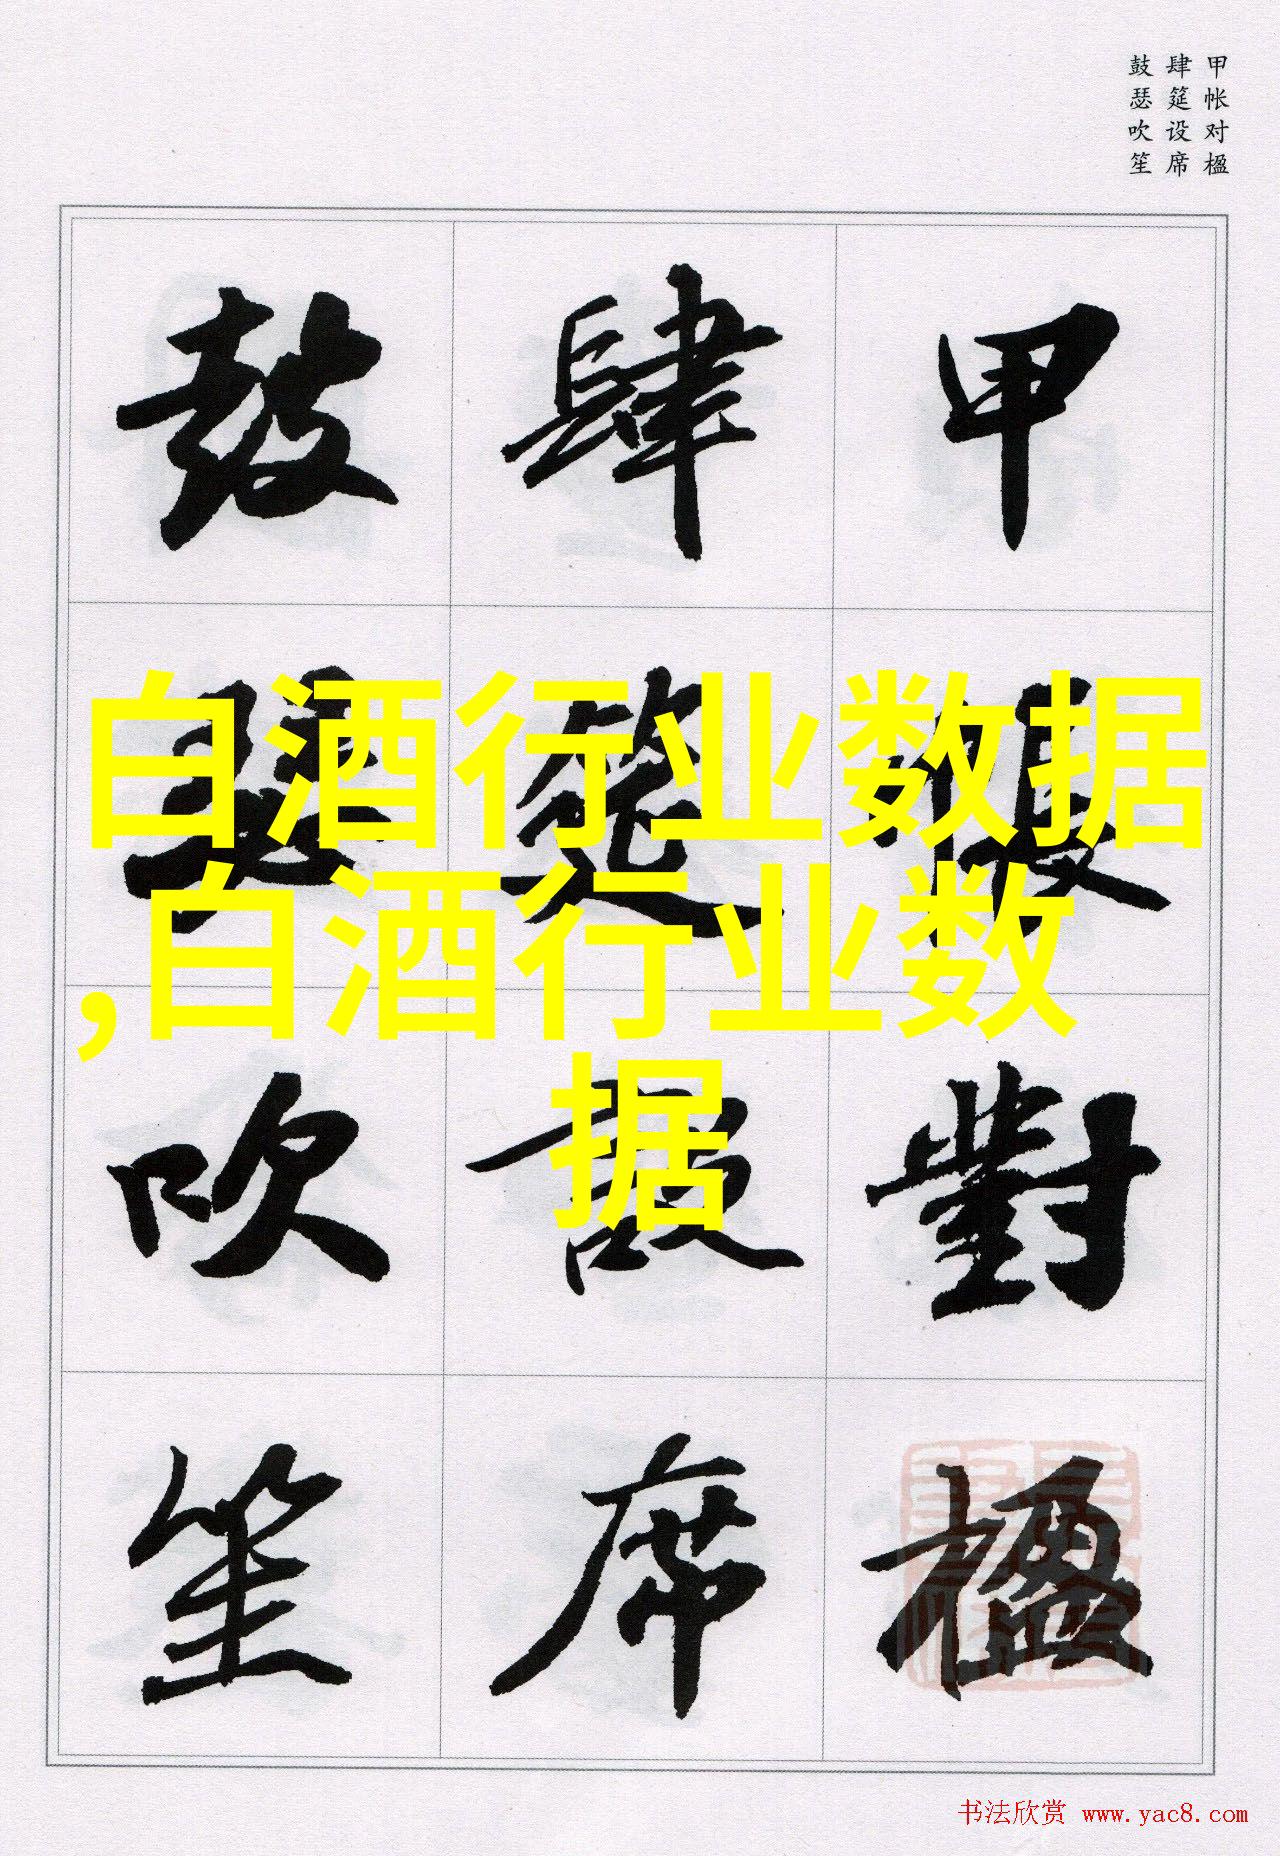 甲帐对楹
肆筵设席
鼓瑟吹笙
甲帳對楹
肆筵設席
鼓瑟吹笙
白酒行业数据
,白酒行业数
据
书法欣赏 www.yac8.com